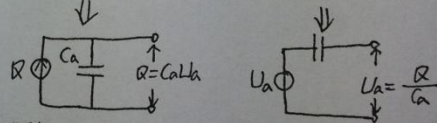 Q
Ca
Q=CaUa
Ua
Ua=Q/Ca